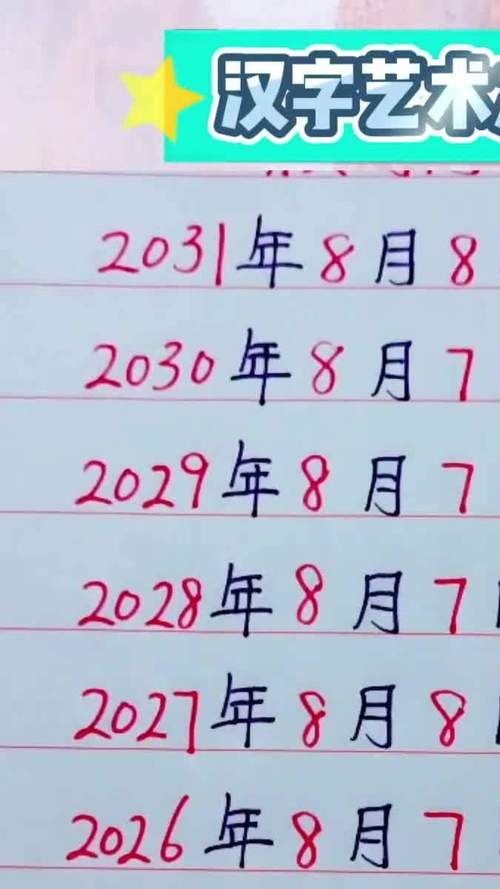 汉字艺术
2031年8月8
2030年8月7
2029年8月7
2028年8月7
2027年8月8
2026年8月7